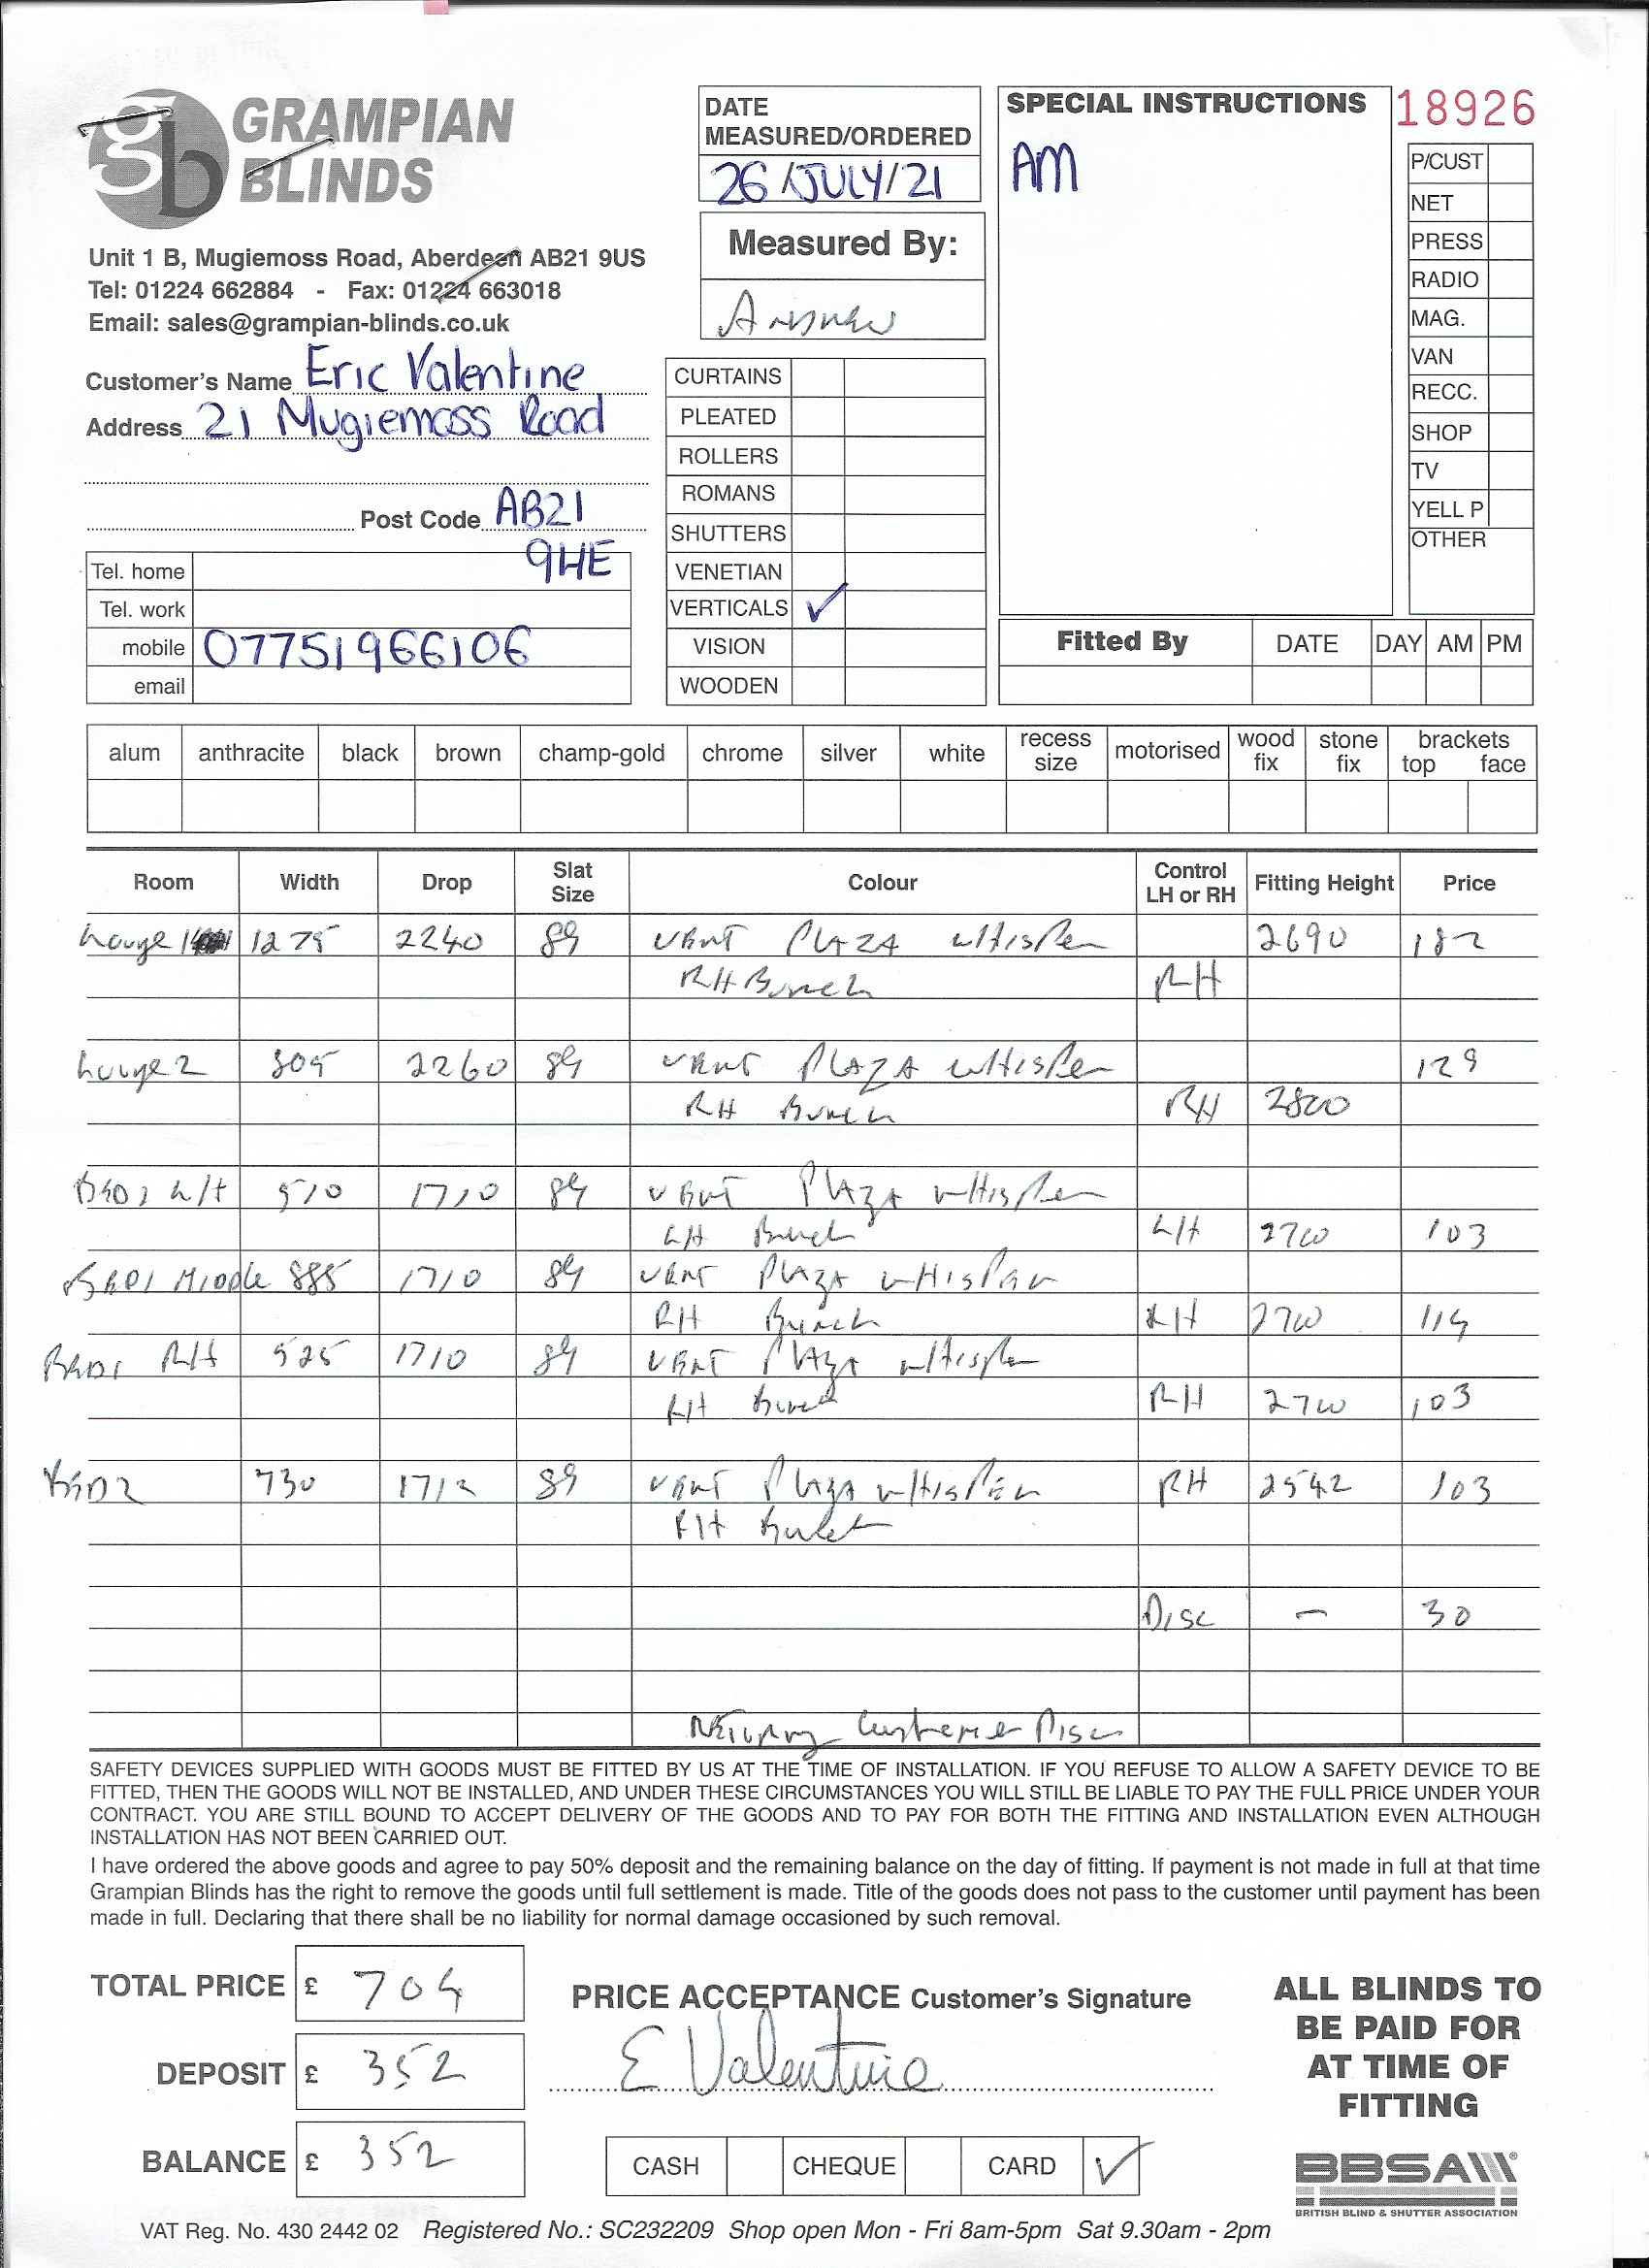 GRAMPIAN
BLINDS
Unit 1 B, Mugiemoss Road, Aberdeen AB21 9US
Tel: 01224 662884 - Fax: 01224 663018
Email: sales@grampian-blinds.co.uk
Customer's Name Eric Valentine
Address 21 Mugiemoss Road
Post Code AB21
9HE
Tel. home
Tel. work
mobile 07751966106
email
DATE
MEASURED/ORDERED
26/JULY/21
Measured By:
CURTAINS
PLEATED
ROLLERS
ROMANS
SHUTTERS
VENETIAN
VERTICALS ✓
VISION
WOODEN
SPECIAL INSTRUCTIONS
AM
18926
P/CUST
NET
PRESS
RADIO
MAG.
VAN
RECC.
SHOP
TV
YELL P
OTHER
Fitted By DATE DAY AM PM
alum anthracite black brown champ-gold chrome silver white recess size motorised wood fix stone fix brackets top face
Room Width Drop Slat Size Colour Control LH or RH Fitting Height Price
Lounge 1 1275 2240 89 VERT PLAZA WHISPER 2690 182
RH Bunch RH
Lounge 2 805 2260 89 VERT PLAZA WHISPER 129
RH Bunch RH 2800
BED1 L/H 510 1710 89 VERT PLAZA WHISPER
LH Bunch LH 2700 103
BED1 Middle 885 1710 89 VERT PLAZA WHISPER
RH Bunch RH 2700 114
BED1 R/H 525 1710 89 VERT PLAZA WHISPER
RH Bunch RH 2700 103
BED2 730 1712 89 VERT PLAZA WHISPER RH 2542 103
RH Bunch
Disc - 30
Customer Disc
SAFETY DEVICES SUPPLIED WITH GOODS MUST BE FITTED BY US AT THE TIME OF INSTALLATION. IF YOU REFUSE TO ALLOW A SAFETY DEVICE TO BE
FITTED, THEN THE GOODS WILL NOT BE INSTALLED, AND UNDER THESE CIRCUMSTANCES YOU WILL STILL BE LIABLE TO PAY THE FULL PRICE UNDER YOUR
CONTRACT. YOU ARE STILL BOUND TO ACCEPT DELIVERY OF THE GOODS AND TO PAY FOR BOTH THE FITTING AND INSTALLATION EVEN ALTHOUGH
INSTALLATION HAS NOT BEEN CARRIED OUT.
I have ordered the above goods and agree to pay 50% deposit and the remaining balance on the day of fitting. If payment is not made in full at that time
Grampian Blinds has the right to remove the goods until full settlement is made. Title of the goods does not pass to the customer until payment has been
made in full. Declaring that there shall be no liability for normal damage occasioned by such removal.
TOTAL PRICE £ 704
DEPOSIT £ 352
BALANCE £ 352
PRICE ACCEPTANCE Customer's Signature
E Valentine
CASH CHEQUE CARD ✓
ALL BLINDS TO
BE PAID FOR
AT TIME OF
FITTING
BBSA
BRITISH BLIND & SHUTTER ASSOCIATION
VAT Reg. No. 430 2442 02 Registered No.: SC232209 Shop open Mon - Fri 8am-5pm Sat 9.30am - 2pm